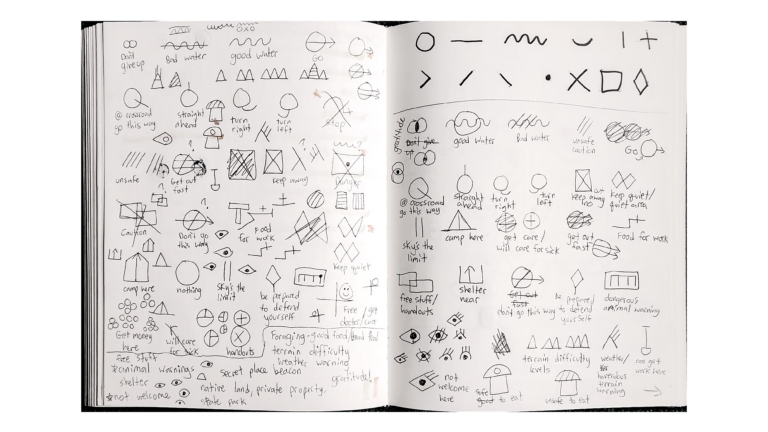 Don't
give up
Bad water
good water
Go
@ crossroad
go this way
straight
ahead
turn
right
turn
left
Stop
unsafe
Get out
fast
keep away
Danger
Caution
Don't go
this way
Food
for work
keep quiet
camp here
nothing
sky's the
limit
be prepared
to defend
yourself
Free / get
Get money
here
will care
for sick
handouts
Foraging: good food / bad food
terrain difficulty
weather warning
free stuff
*animal warnings
secret place beacon
gratitude!
shelter
native land, private property,
*not welcome
state park
gratitude
Don't give
up
good water
Bad water
unsafe
caution
Go
@ crossroad
go this way
straight
ahead
turn
right
turn
left
keep away
keep quiet/
quiet area
sky's the
limit
camp here
get care/
will care for sick
get out
fast
Food for work
free stuff/
handouts
shelter
near
Get out
fast
don't go this way
be prepared/
to defend
yourself
dangerous
animal warning
terrain difficulty
levels
weather/
hazardous
terrain
warning
can get
work here
not
welcome
here
safe
good to eat
unsafe to eat